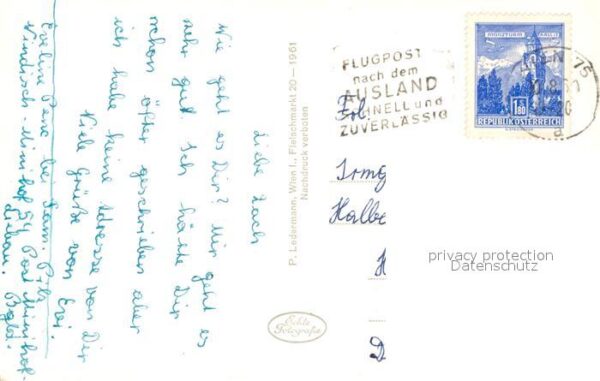 Liebe Zach
Wie geht es Dir? Mir geht es
sehr gut. Ich hätte Dir
schon öfter geschrieben aber
ich habe keine Adresse von Dir
Viele Grüße von Evi.
Eveline bei Fam.
Windisch-Minihof 54 Post Minihof-
Liebau. Bgld.
P. Ledermann, Wien I., Fleischmarkt 20 – 1961
Nachdruck verboten
Echte
Fotografie
FLUGPOST
nach dem
AUSLAND
SCHNELL und
ZUVERLÄSSIG
WIEN 75
MÜNZTURM HALL I.T.
1.80
REPUBLIK ÖSTERREICH
Frl
Irmg
Halbe
H
D
privacy protection
Datenschutz